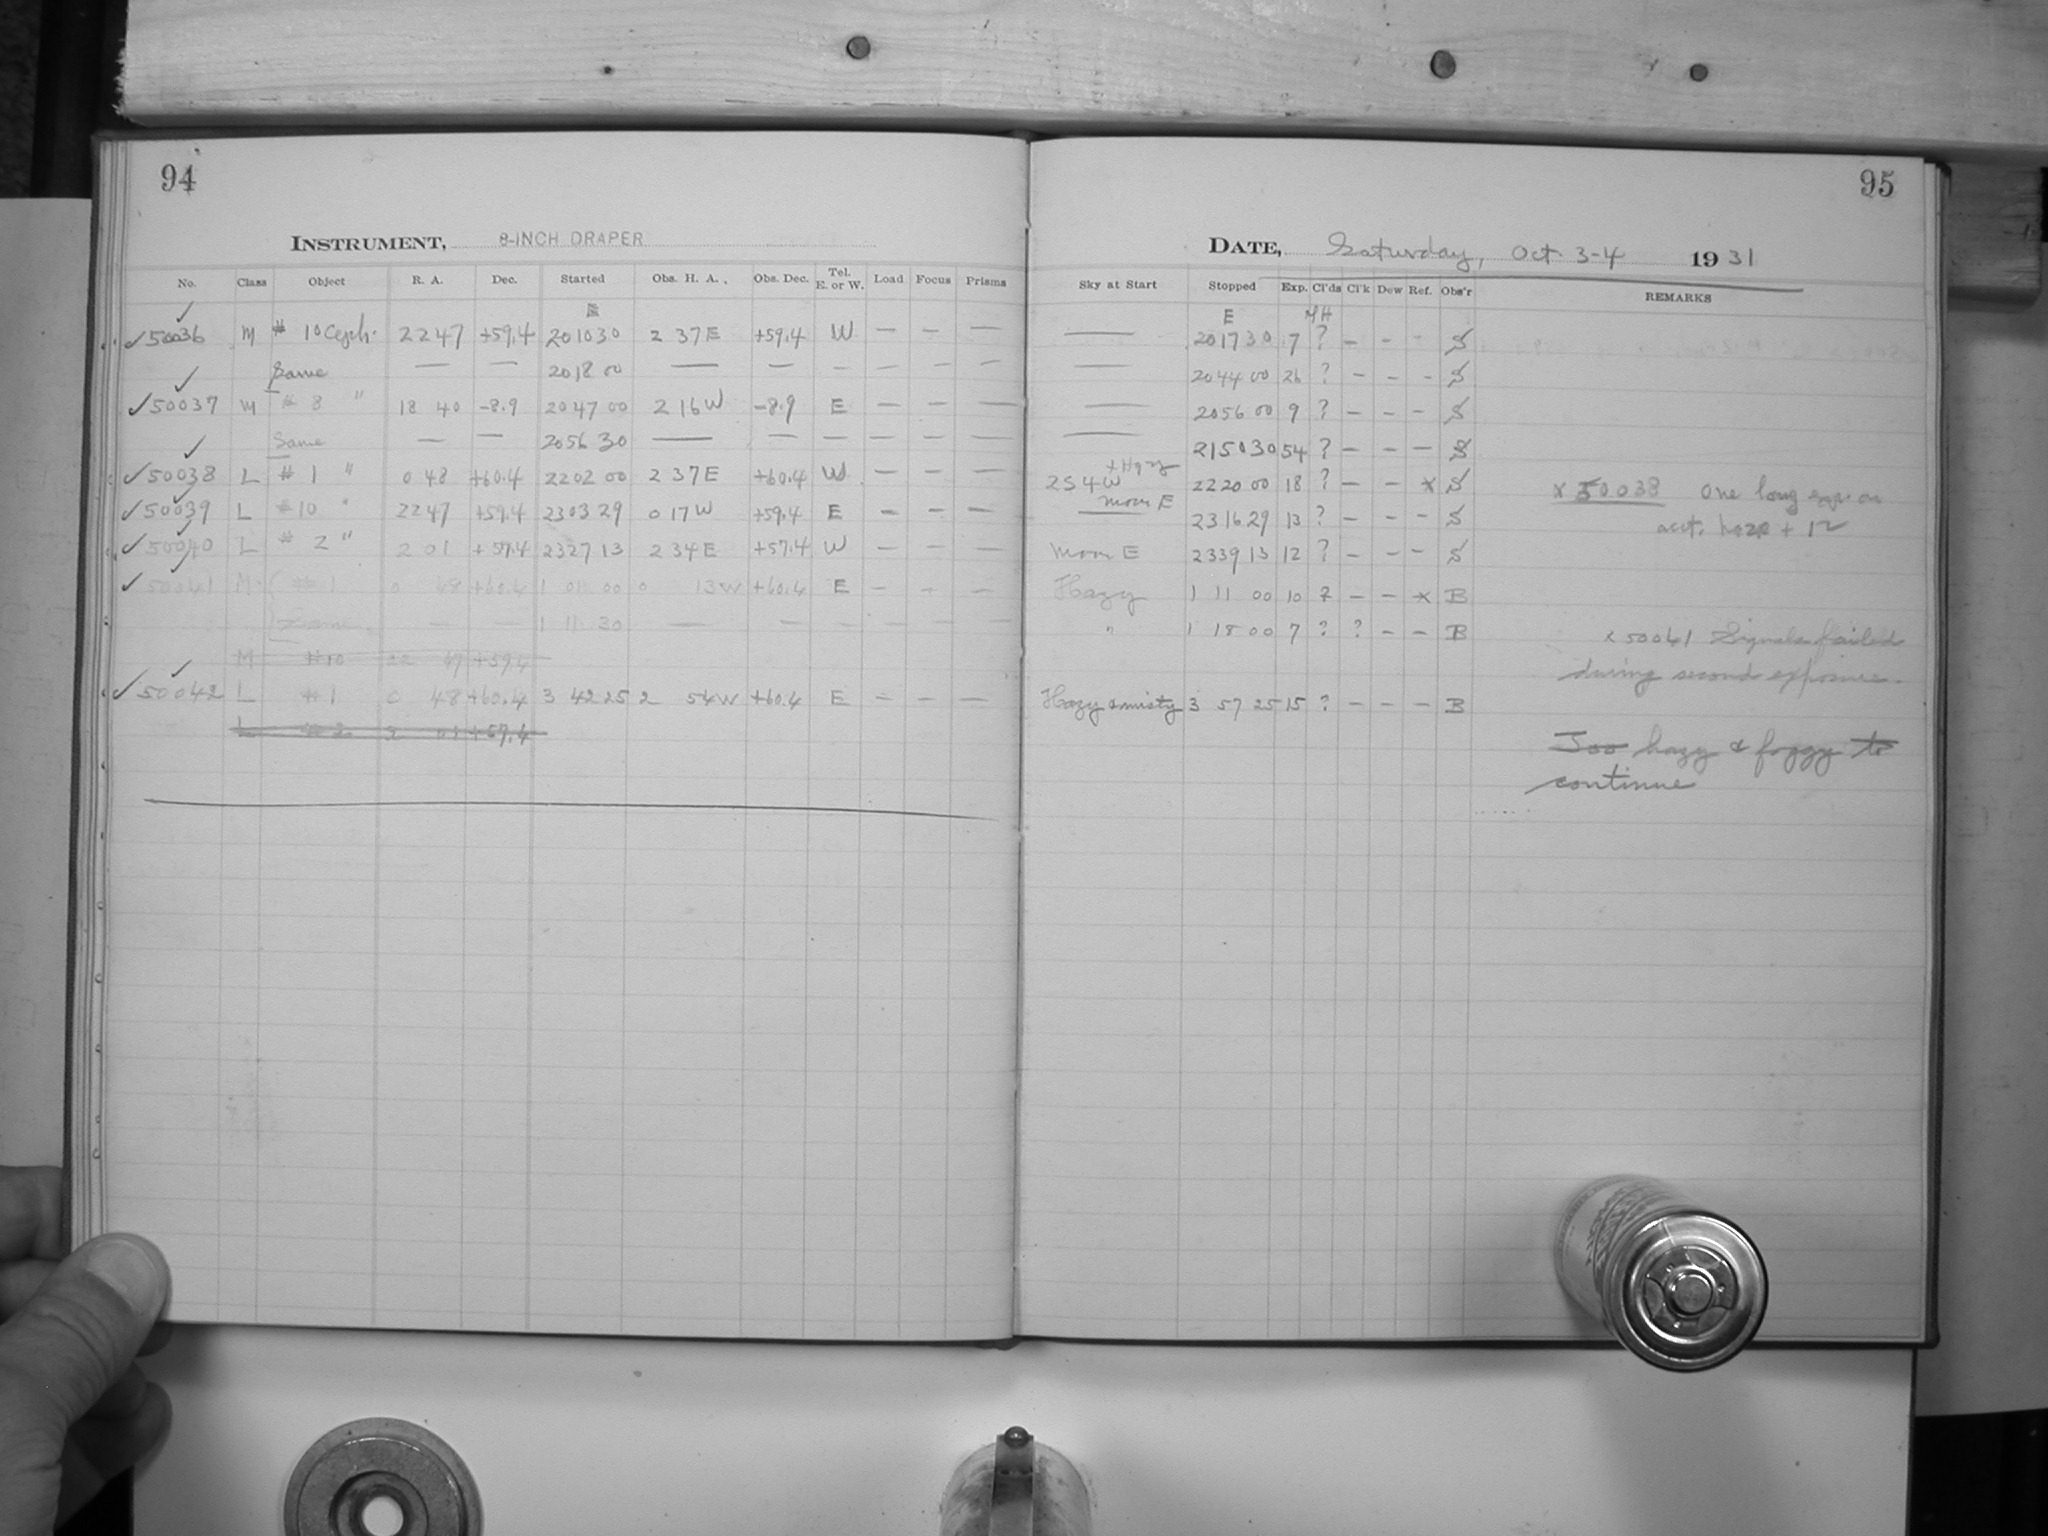 94
INSTRUMENT, 8-INCH DRAPER
No. Class Object R. A. Dec. Started Obs. H. A. Obs. Dec. Tel. E. or W. Load Focus Prisms
E
✓ 50036 M # 10 Ceph. 22 47 +59.4 20 10 30 2 37 E +59.4 W — — —
Same — — 20 18 00 — — — — — —
✓ 50037 M # 8 " 18 40 -8.9 20 47 00 2 16 W -8.9 E — — —
Same — — 20 56 30 — — — — — —
✓ 50038 L # 1 " 0 48 +60.4 22 02 00 2 37 E +60.4 W — — —
✓ 50039 L # 10 " 22 47 +59.4 23 03 29 0 17 W +59.4 E — — —
✓ 50040 L # 2 " 2 01 +57.4 23 27 13 2 34 E +57.4 W — — —
✓ 50041 M # 1 0 48 +60.4 1 01 00 0 13 W +60.4 E — — —
Same — — 1 11 30 — — — — — —
M #10 22 47 +59.4
✓ 50042 L # 1 0 48 +60.4 3 42 25 2 54 W +60.4 E — — —
L # 2 2 01 +57.4
95
DATE, Saturday, Oct. 3-4 1931
Sky at Start Stopped Exp. Cl'ds Cl'k Dew Ref. Obs'r REMARKS
E MH
— 20 17 30 7 ? — — — S
— 20 44 00 26 ? — — — S
— 20 56 00 9 ? — — — S
— 21 50 30 54 ? — — — S
+ Hazy
2 S 4 W 22 20 00 18 ? — — x S x 50038 One long exp. on
moon E 23 16 29 13 ? — — — S acct. haze +
moon E 23 39 13 12 ? — — — S
Hazy 1 11 00 10 ? — — x B
" 1 18 00 7 ? ? — — B x 50041 Signals failed
during second exposure.
Hazy & misty 3 57 25 15 ? — — — B
Too hazy & foggy to
continue